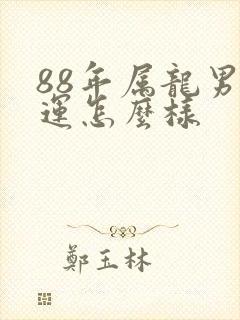 88年属龍男
運怎麼樣
鄭玉林